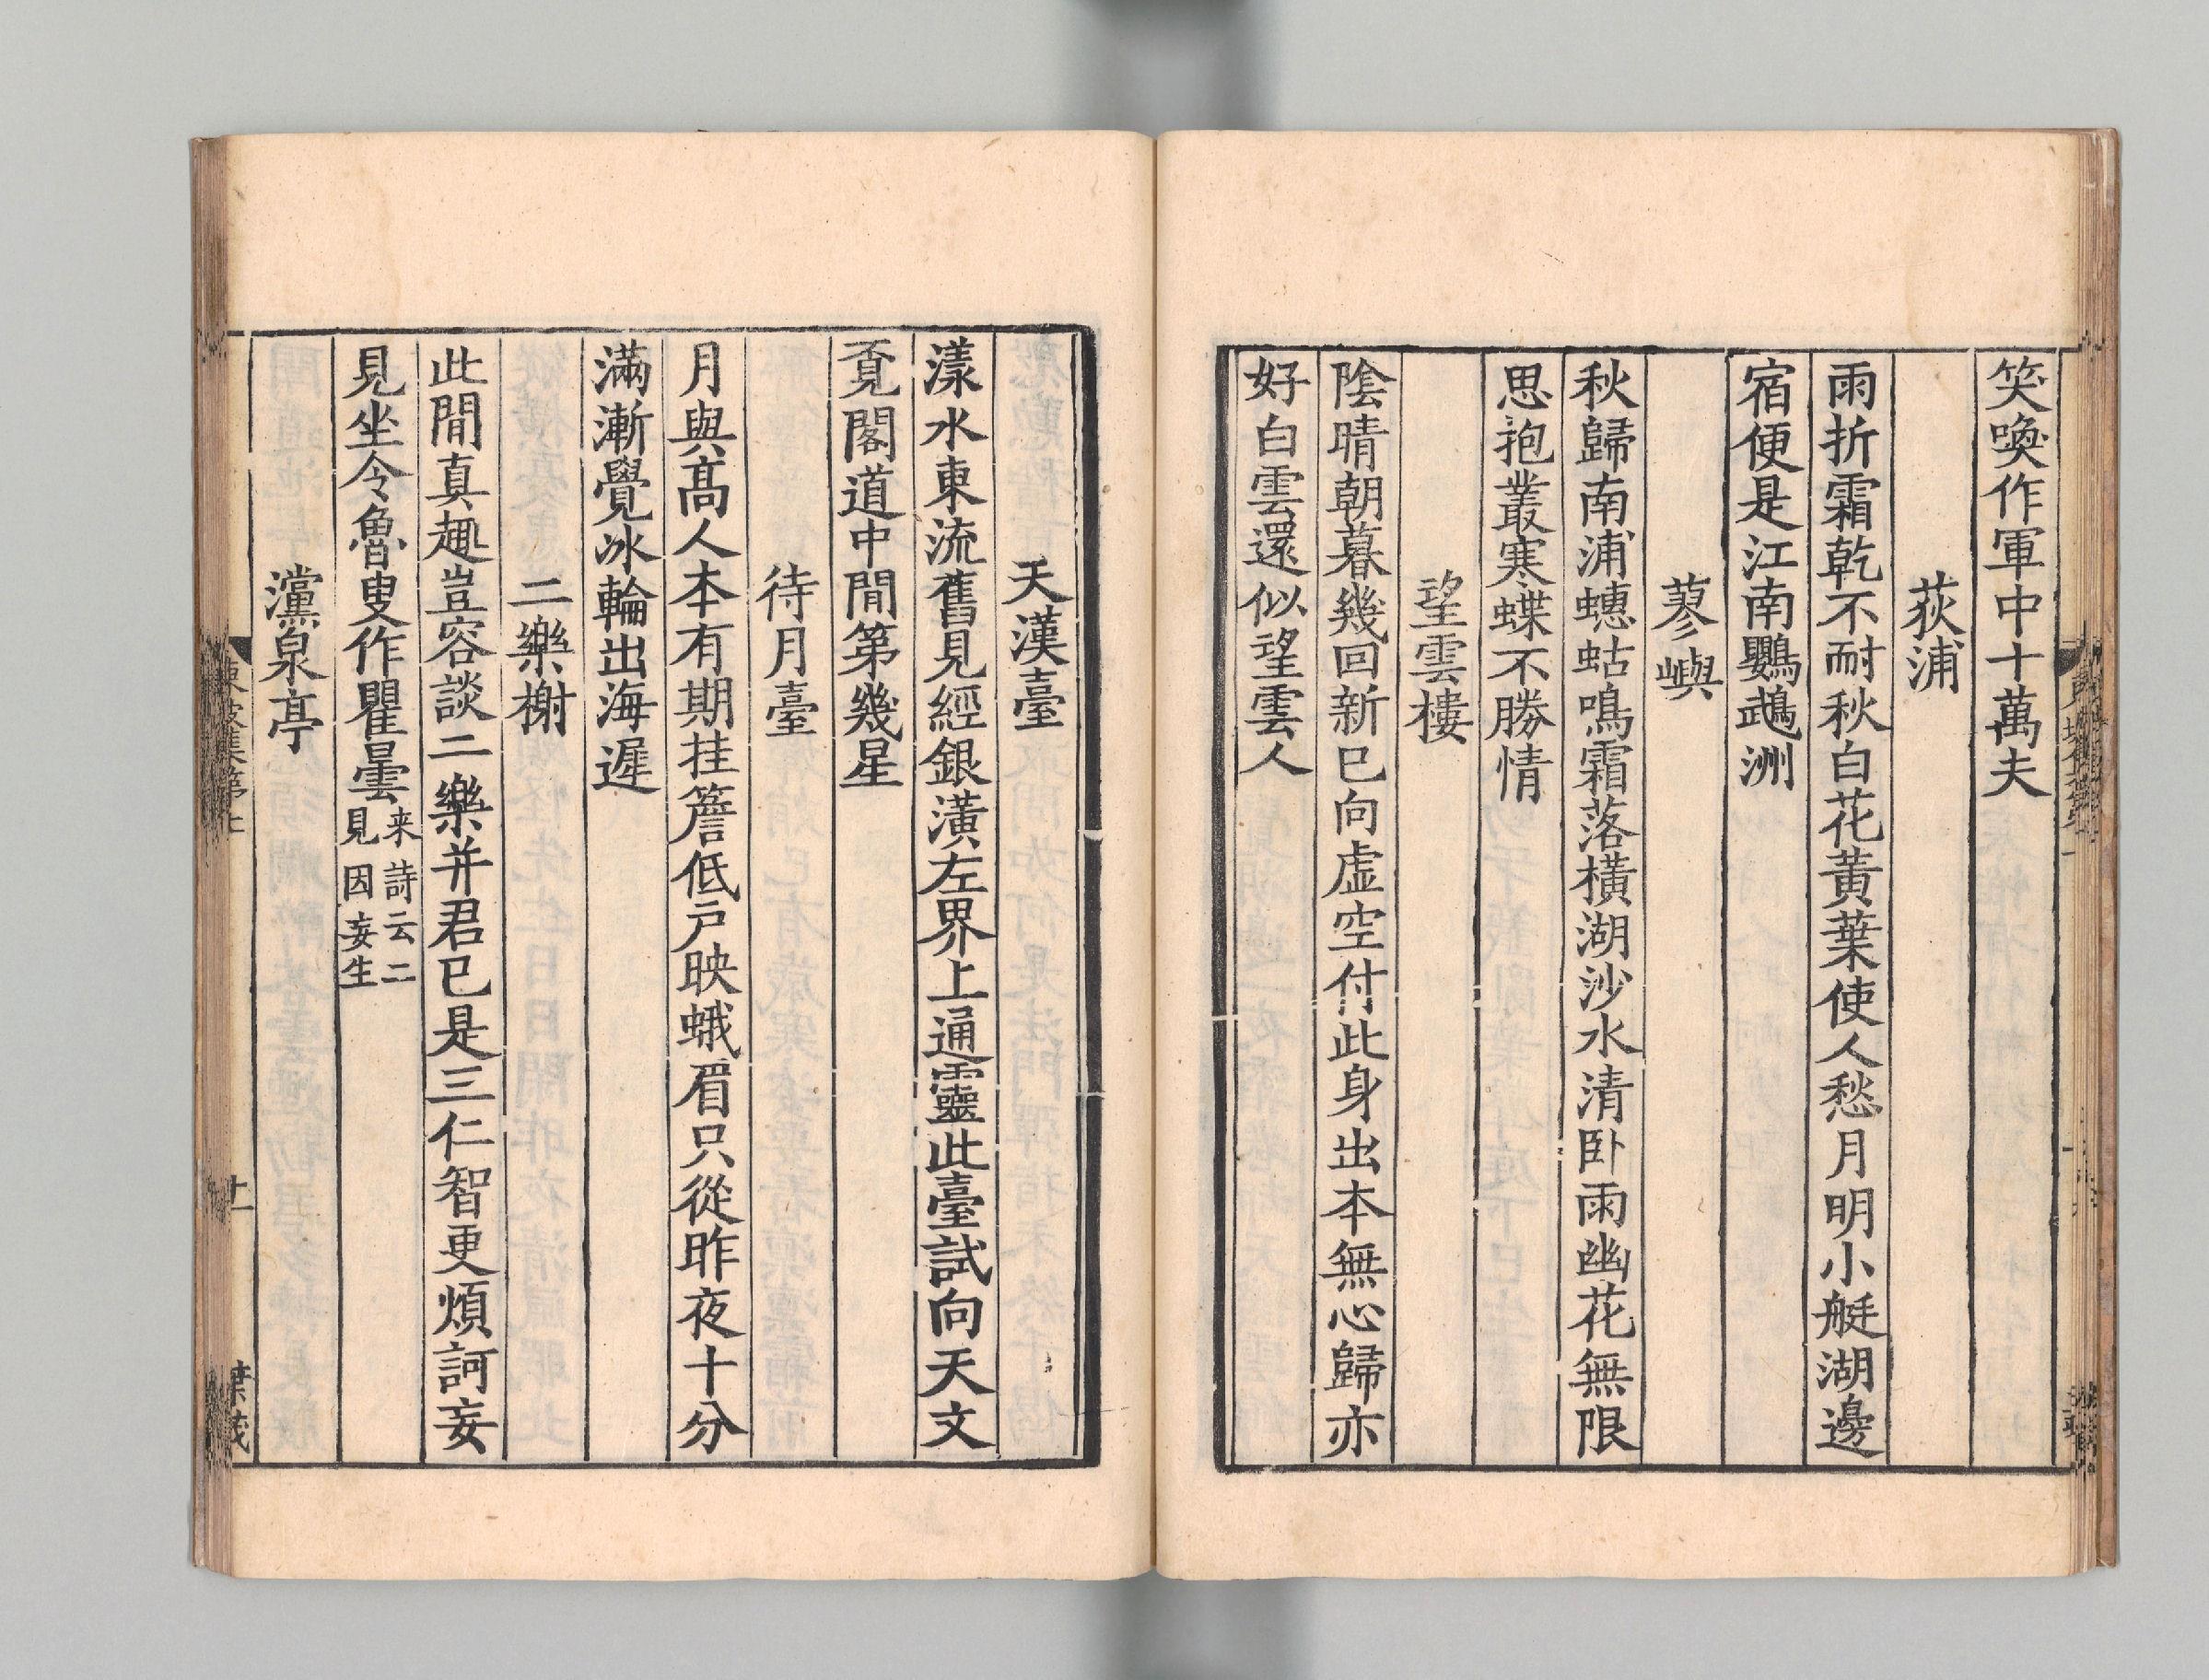 笑喚作軍中十萬夫
荻浦
雨折霜乾不耐秋白花黃葉使人愁月明小艇湖邊
宿便是江南鸚鵡洲
蓼嶼
秋歸南浦蟪蛄鳴霜落橫湖沙水清卧雨幽花無限
思抱叢寒蝶不勝情
望雲樓
陰晴朝暮幾回新已向虛空付此身出本無心歸亦
好白雲還似望雲人
天漢臺
漾水東流舊見經銀潢左界上通靈此臺試向天文
覔閣道中間第幾星
待月臺
月與高人本有期挂簷低戶映蛾眉只從昨夜十分
滿漸覺冰輪出海遲
二樂榭
此間真趣豈容談二樂并君已是三仁智更煩訶妄
見坐令魯叟作瞿曇来詩云二見因妄生
灙泉亭
東坡集第七
十一
葉茂